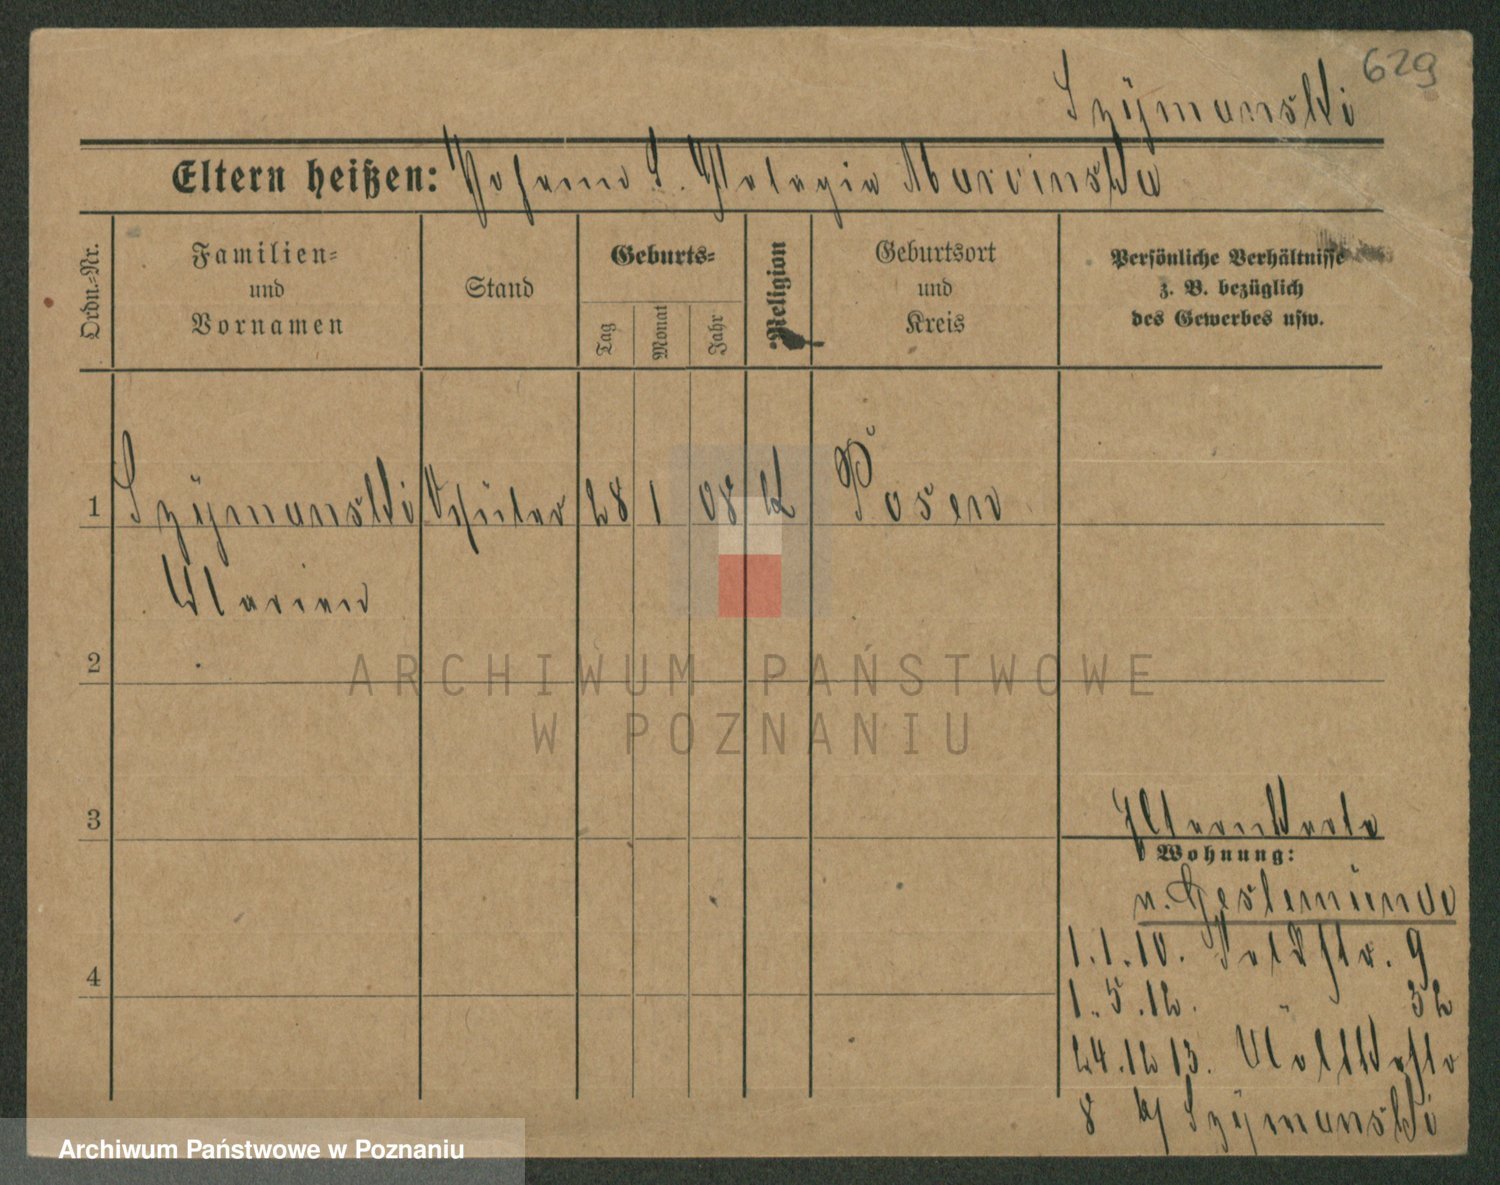 629
Szÿmanski
Eltern heißen: Johann S. Pelagia Marcinska
Ordn.=Nr.
Familien=
und
Vornamen
Stand
Geburts=
Tag
Monat
Jahr
Religion
Geburtsort
und
Kreis
Persönliche Verhältnisse
z. B. bezüglich
des Gewerbes usw.
1 Szÿmanski Schüler 28 1 08 k Posen
Marian
2
ARCHIWUM PAŃSTWOWE
W POZNANIU
3
Elternkarte
Wohnung:
n. Gestemünde
1.1.10. 9
4
1.5.12. " 32
24.12 13.
8 b/ Szÿmanski
Archiwum Państwowe w Poznaniu